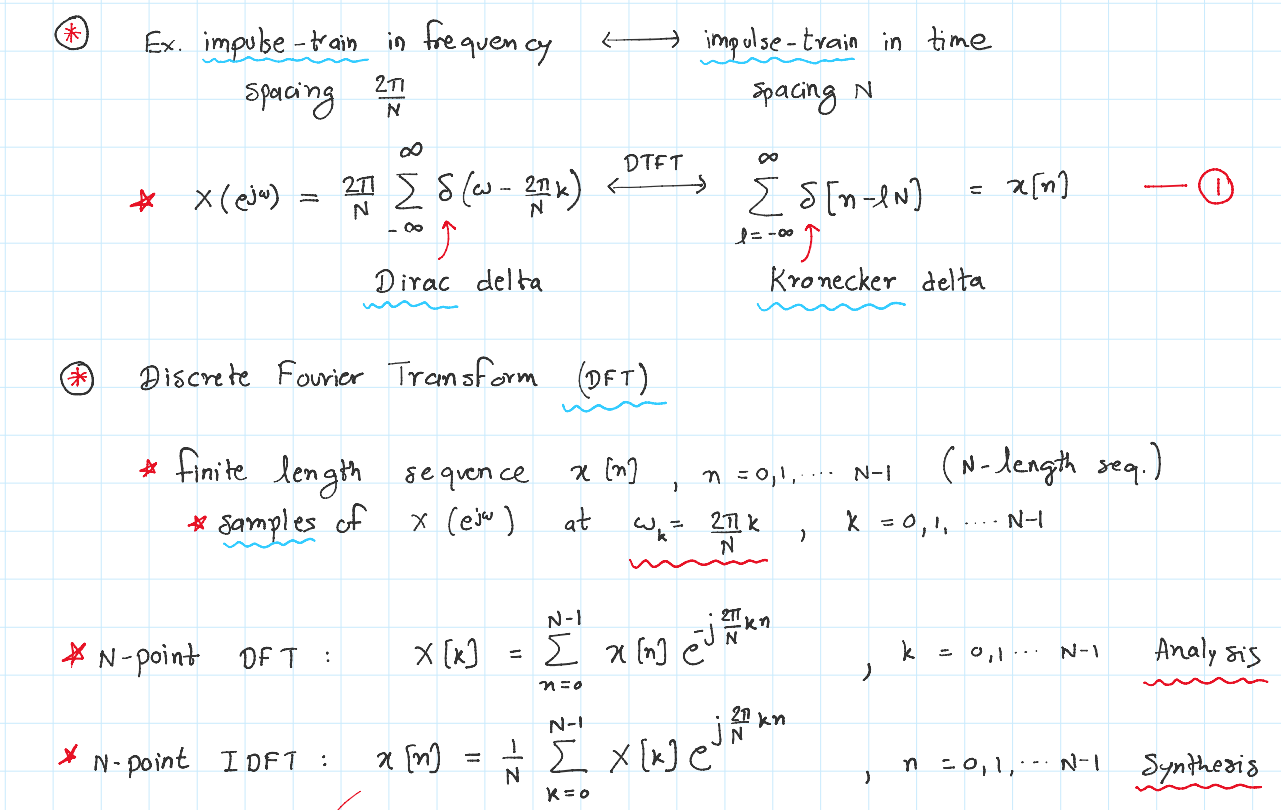 Ex. impulse-train in frequency ⟷ impulse-train in time
spacing 2π/N spacing N
X(e^{jω}) = 2π/N ∑_{-∞}^{∞} δ(ω - 2π/N k) ⟷^{DTFT} ∑_{l=-∞}^{∞} δ[n-lN] = x[n] — ①
Dirac delta Kronecker delta
Discrete Fourier Transform (DFT)
* finite length sequence x[n], n = 0,1,.... N-1 (N-length seq.)
* samples of X(e^{jω}) at ω_k = 2π/N k, k = 0,1, .... N-1
* N-point DFT : X[k] = ∑_{n=0}^{N-1} x[n] e^{-j 2π/N kn}, k = 0,1 ... N-1 Analysis
* N-point IDFT : x[n] = 1/N ∑_{k=0}^{N-1} X[k] e^{j 2π/N kn}, n = 0,1,... N-1 Synthesis